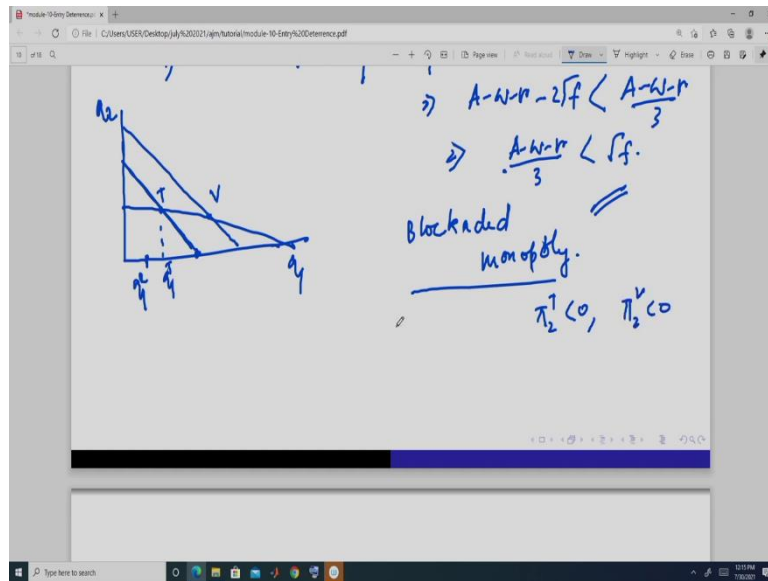 *module-10-Entry Deterrence.p
File | C:/Users/USER/Desktop/july%202021/ajm/tutorial/module-10-Entry%20Deterrence.pdf
10 of 10
Page view
Read aloud
Draw
Highlight
Erase
⇒) A-w-r-2√f < A-w-r/3
⇒) A-w-r/3 < √f.
q2
T
V
q1
Blockaded
monopoly.
π2^T <0, π2^V <0
Type here to search
12:15 PM
7/30/2021